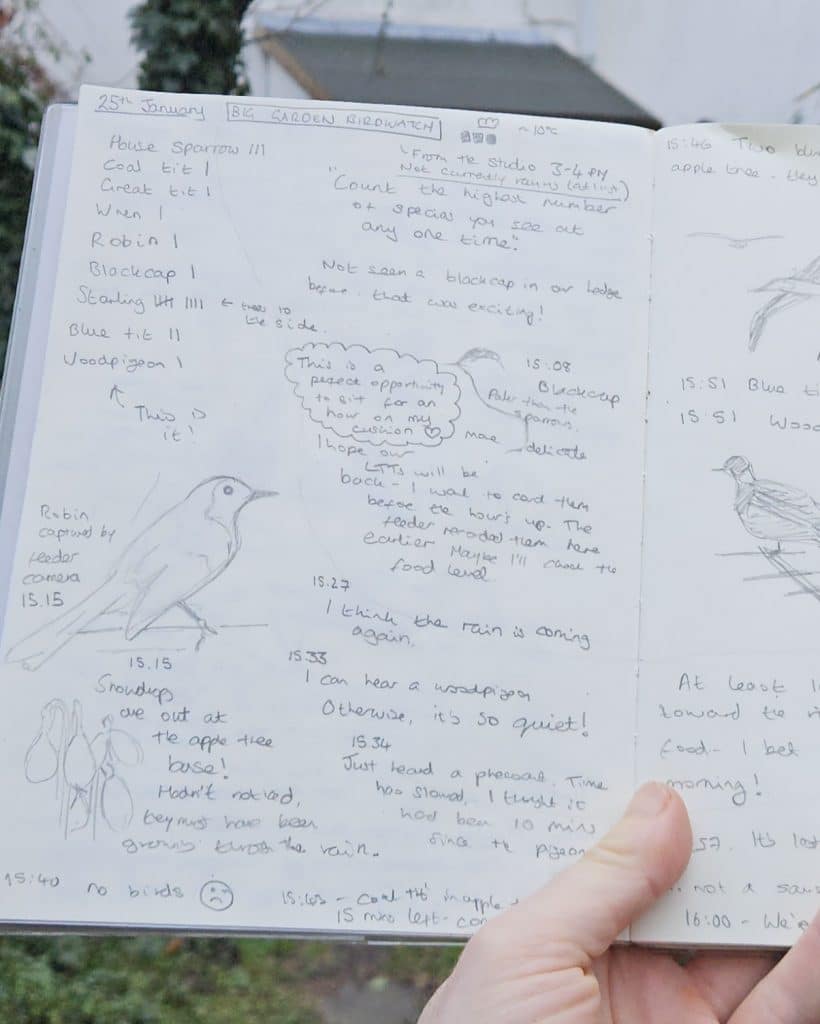 25th January BIG GARDEN BIRDWATCH ~10°C
House Sparrow III
Coal tit I
Great tit I
Wren I
Robin I
Blackcap I
Starling IIII IIII ← trees to
the side.
Blue tit II
Woodpigeon I
↑ This is
it!
From the studio 3-4 PM
Not currently raining (at last)
"Count the highest number
of species you see at
any one time."
Not seen a blackcap in our hedge
before, that was exciting!
This is a
perfect opportunity
to sit for an
hour on my
cushion ♡
15.08
Blackcap
Paler than the
sparrows.
more delicate
I hope our
LTTs will be
back - I want to count them
before the hour's up. The
feeder recorded them here
earlier Maybe I'll check the
food level
Robin
captured by
feeder
camera
15.15
15.15
Snowdrops
are out at
the apple tree
base!
Hadn't noticed,
they must have been
growing through the rain.
15.27
I think the rain is coming
again.
15.33
I can hear a woodpigeon
Otherwise, it's so quiet!
15.34
Just heard a pheasant. Time
has slowed, I thought it
had been 10 mins
since the pigeon
15:40 no birds ☹
15:43 - Coal tit in apple
15 mins left -
15:46 Two
apple tree - they
15:51 Blue
15:51
At least
toward the
food - I bet
morning!
57. It's
.. not a
16:00 - We're